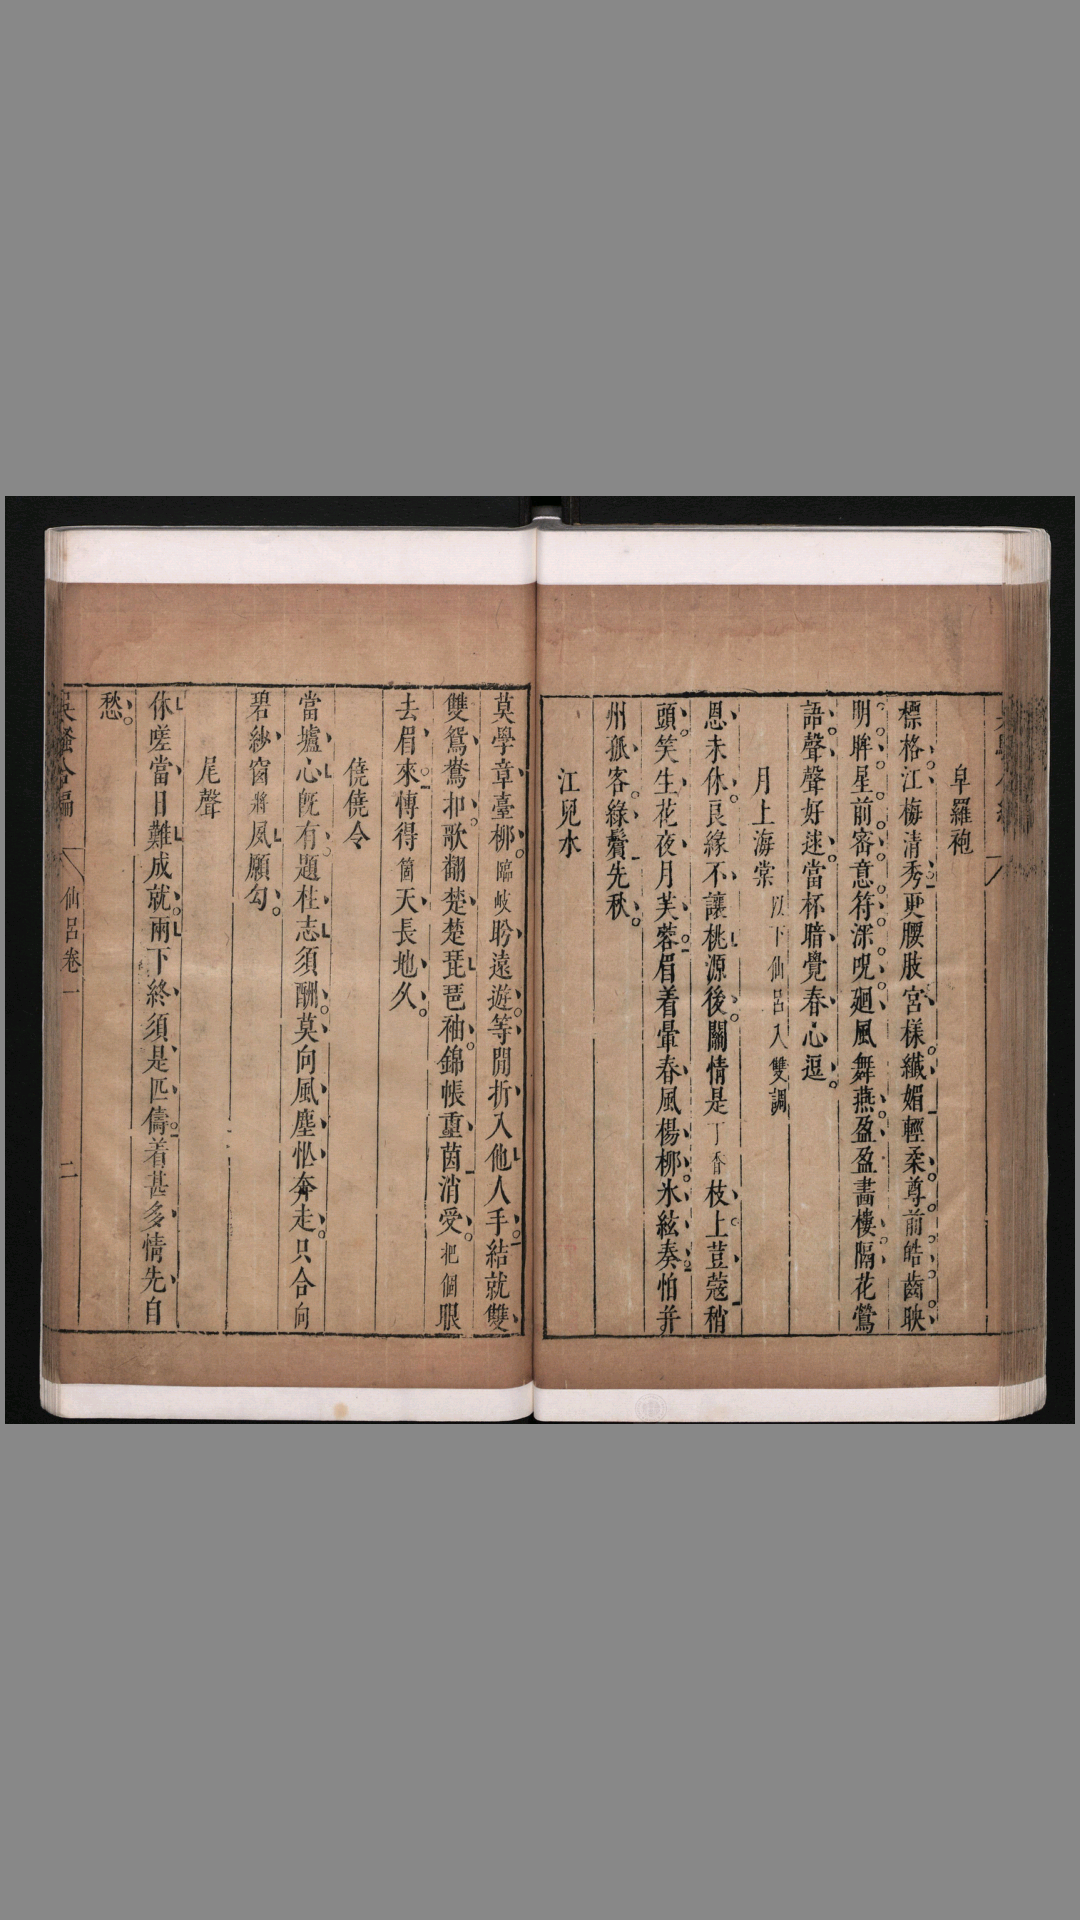 皁羅袍
標格江梅清秀更腰肢宮樣纖媚輕柔尊前皓齒映
明眸星前密意符深呪廻風舞燕盈盈畵樓隔花鶯
語聲聲好逑當杯暗覺春心逗
月上海棠 以下仙呂入雙調
恩未休良緣不讓桃源後關情是丁香枝上荳蔻稍
頭笑生花夜月芙蓉眉着暈春風楊柳氷絃奏怕并
州孤客綠鬢先秋
江兒水
莫學章臺柳臨岐盻遠遊等閒折入他人手結就雙
雙鴛鴦扣歌翻楚楚琵琶袖錦帳重茵消受把個眼
去眉來博得箇天長地久
僥僥令
當壚心旣有題柱志須酬莫向風塵忙奔走只合向
碧紗窗將夙願勾
尾聲
休嗟當日難成就兩下終須是匹儔着甚多情先自
愁
吳騷合編 仙呂卷一 二